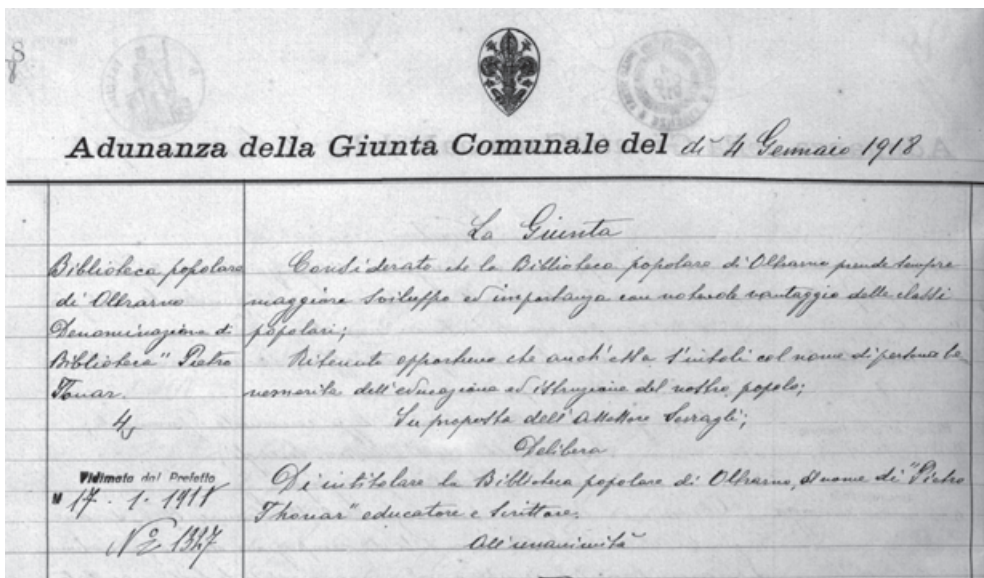 Adunanza della Giunta Comunale del dì 4 Gennaio 1918
La Giunta
Biblioteca popolare
di Oltrarno
Denominazione di
Biblioteca "Pietro
Thouar.
4
Vidimata dal Prefetto
17. 1. 1918
N 1327
Considerato che la Biblioteca popolare di Oltrarno prende sempre
maggiore sviluppo ed importanza con notevole vantaggio delle classi
popolari;
Ritenuto opportuno che anch'essa s'intitoli col nome di persona be
nemerita dell'educazione ed istruzione del nostro popolo;
Su proposta dell'Assessore Serragli;
Delibera
Di intitolare la Biblioteca popolare di Oltrarno, al nome di "Pietro
Thouar" educatore e scrittore.
All'unanimità